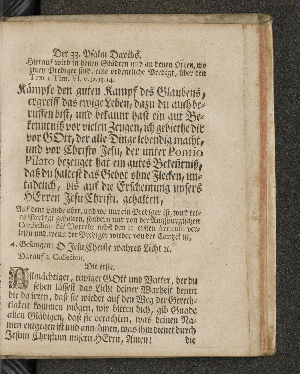 Der 33. Psalm Davids.
Hierauf wird in denen Städten und an denen Orten, wo
zween Prediger sind, eine ordentliche Predigt, über den
Text 1 Tim. VI. v. 12. 13. 14.
Kämpfe den guten Kampf des Glaubens,
ergreiff das ewige Leben, dazu du auch be-
ruffen bist, und bekannt hast ein gut Be-
kenntniß vor vielen Zeugen, ich gebiethe dir
vor GOtt, der alle Dinge lebendig macht,
und vor Christo Jesu, der unter Pontio
Pilato bezeuget hat ein gutes Bekentniß,
daß du haltest das Gebot ohne Flecken, un-
tadelich, bis auf die Erscheinung unsers
HErren Jesu Christi. gehalten,
Auf dem Lande aber, und wo nur ein Prediger ist, wird kei-
ne Predigt gehalten, sondern nur von der Augspurgischen
Confession die Vorrede nebst den 21 ersten Articuln ver-
lesen und, wenn der Prediger wieder von der Cantzel ist,
4. Gesungen: O JEsu Christe wahres Licht ꝛc.
Darauf 2. Collecten.
Die erste.
Allmächtiger, ewiger GOtt und Vatter, der du
sehen lässest das Licht deiner Warheit denen
die da irren, daß sie wieder auf den Weg der Gerech-
tigkeit kommen mögen, wir bitten dich, gib Gnade
allen Gläbigen, daß sie verachten, was deinen Na-
men entgegen ist und annehmen, was ihm dienet durch
Jesum Christum unsern HErrn, Amen!
die